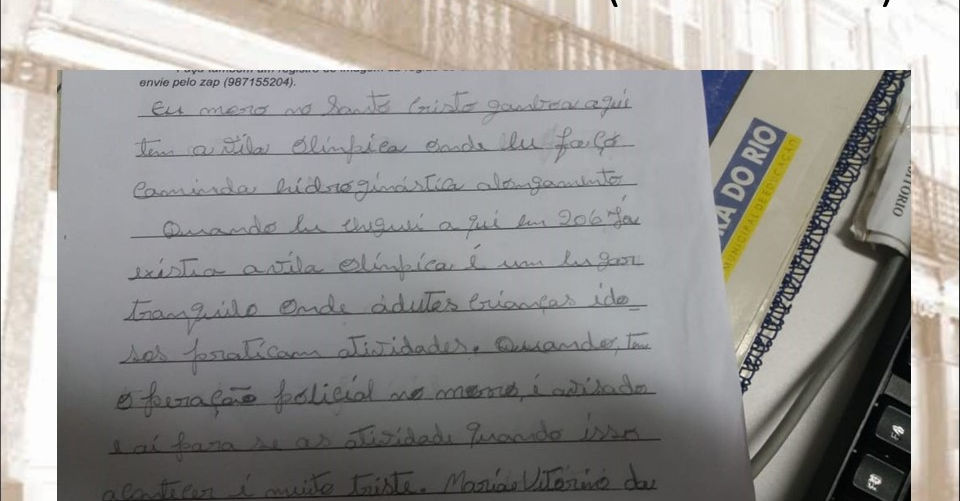 envie pelo zap (987155204).
Eu moro no Santo Cristo ganboa aqui
tem a vila Olímpica onde Eu faço
Caminda hidroginástica alongamento
Quando Eu cheguei a qui em 206 Já
existia a vila Olímpica é um lugar
tranquilo Onde ádutos Crianças ido_
sos praticam atividades. Quando, tem
o peração policial no morro, é avisado
e aí para se as atividade quando isso
acontecer é muito triste. Maria Vitorino da
RA DO RIO
MUNICIPAL DE EDUCAÇÃO
F8